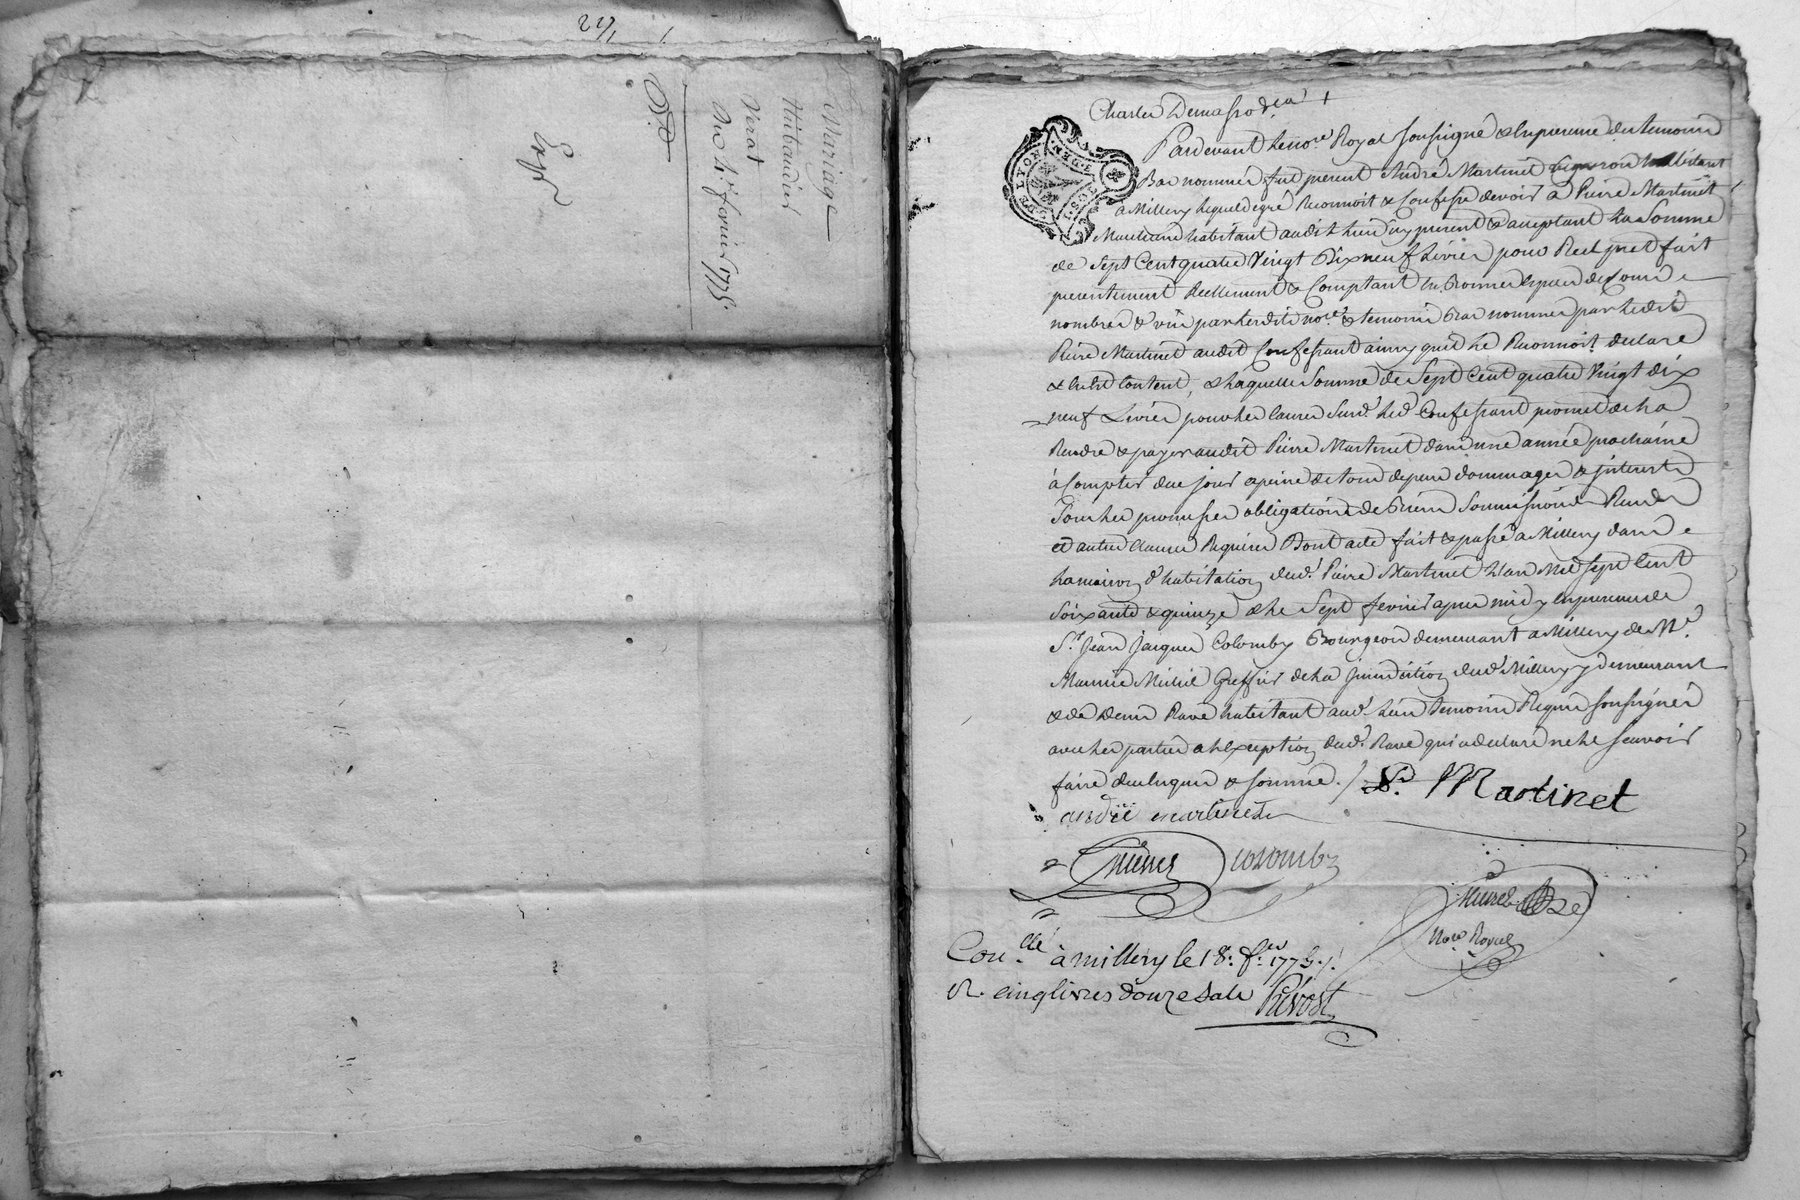 Mariage
Thibaudier
Verat
Du 4.e fevrier 1775.
Exp.é
Pardevant le no.re Royal soussigné & en presence des temoins
Bas nommés fut present André Martinet vigneron habitant
a Millery lequel de gré Reconnoit & Confesse devoir a Pierre Martinet
habitant audit lieu icy present & acceptant La Somme
de Sept Cent quatre Vingt Dix neuf Livres pour Reel pret fait
presentement Reellement & Comptant en Bonnes especes de Cours
nombrées & vüe par lesdits no.re & temoins Bas nommés par ledit
Pierre Martinet audit Confessant ainsy quil le Reconnoit declare
& sen dit Content, & laquelle Somme de Sept Cent quatre Vingt dix
neuf Livres pour les causes Susd.s led.t Confessant promet de la
Rendre & payer audit Pierre Martinet dans une année prochaine
à Compter de ce jour a peine de tous depens dommages & interets
Sous les promesses obligations de Biens Soumissions Rendes
et autres clauses Requises Dont acte fait & passé a Millery dans
la maison d'habitation dud.t Pierre Martinet L'an Mil Sept Cent
Soixante & quinze & le Sept fevrier apres midy en presence de
S.r Jean Jacques Colomby Bourgeois demeurant a Millery de M.e
Maurice Michel Greffier de la juridiction dud.t Millery y demeurant
& de Denis Ravé habitant aud.t lieu temoins Requis soussignés
avec les parties a l'exception dud.t Ravé qui a declaré ne le scavoir
faire de ce enquis & sommé./. P. Martinet
andré martinet
Michel Colomby
No.re Royal
Con.llé à millery le 18. f.er 1775./.
R. cinq livres douze sols Prévost